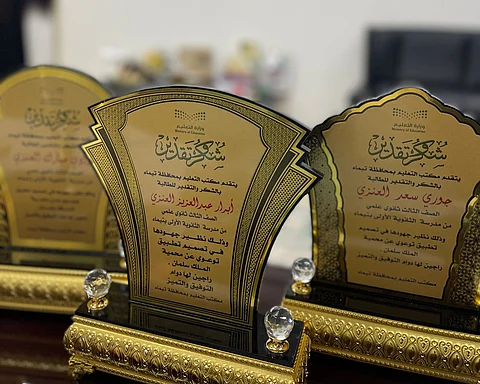 وزارة التعليم
Ministry of Education
شكر وتقدير
يتقدم مكتب التعليم بمحافظة تيماء
بالشكر والتقدير للطالبة
أبرار عبدالعزيز العنزي
الصف الثالث ثانوي علمي
من مدرسة الثانوية الأولى بتيماء
وذلك نظير جهودها
في تصميم تطبيق
توعوي عن محمية
الملك سلمان .
راجين لها دوام
التوفيق والتميز
مكتب التعليم بمحافظة تيماء
وزارة التعليم
Ministry of Education
شكر وتقدير
يتقدم مكتب التعليم بمحافظة تيماء
بالشكر والتقدير للطالبة
جوري سعد العنزي
الصف الثالث ثانوي علمي
من مدرسة الثانوية الأولى بتيماء
وذلك نظير جهودها في تصميم
تطبيق توعوي عن محمية
الملك سلمان .
راجين لها دوام التوفيق والتميز
مكتب التعليم بمحافظة تيماء
شكر وتقدير
العنزي